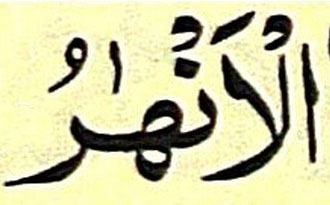 الْاَنْهٰرُ